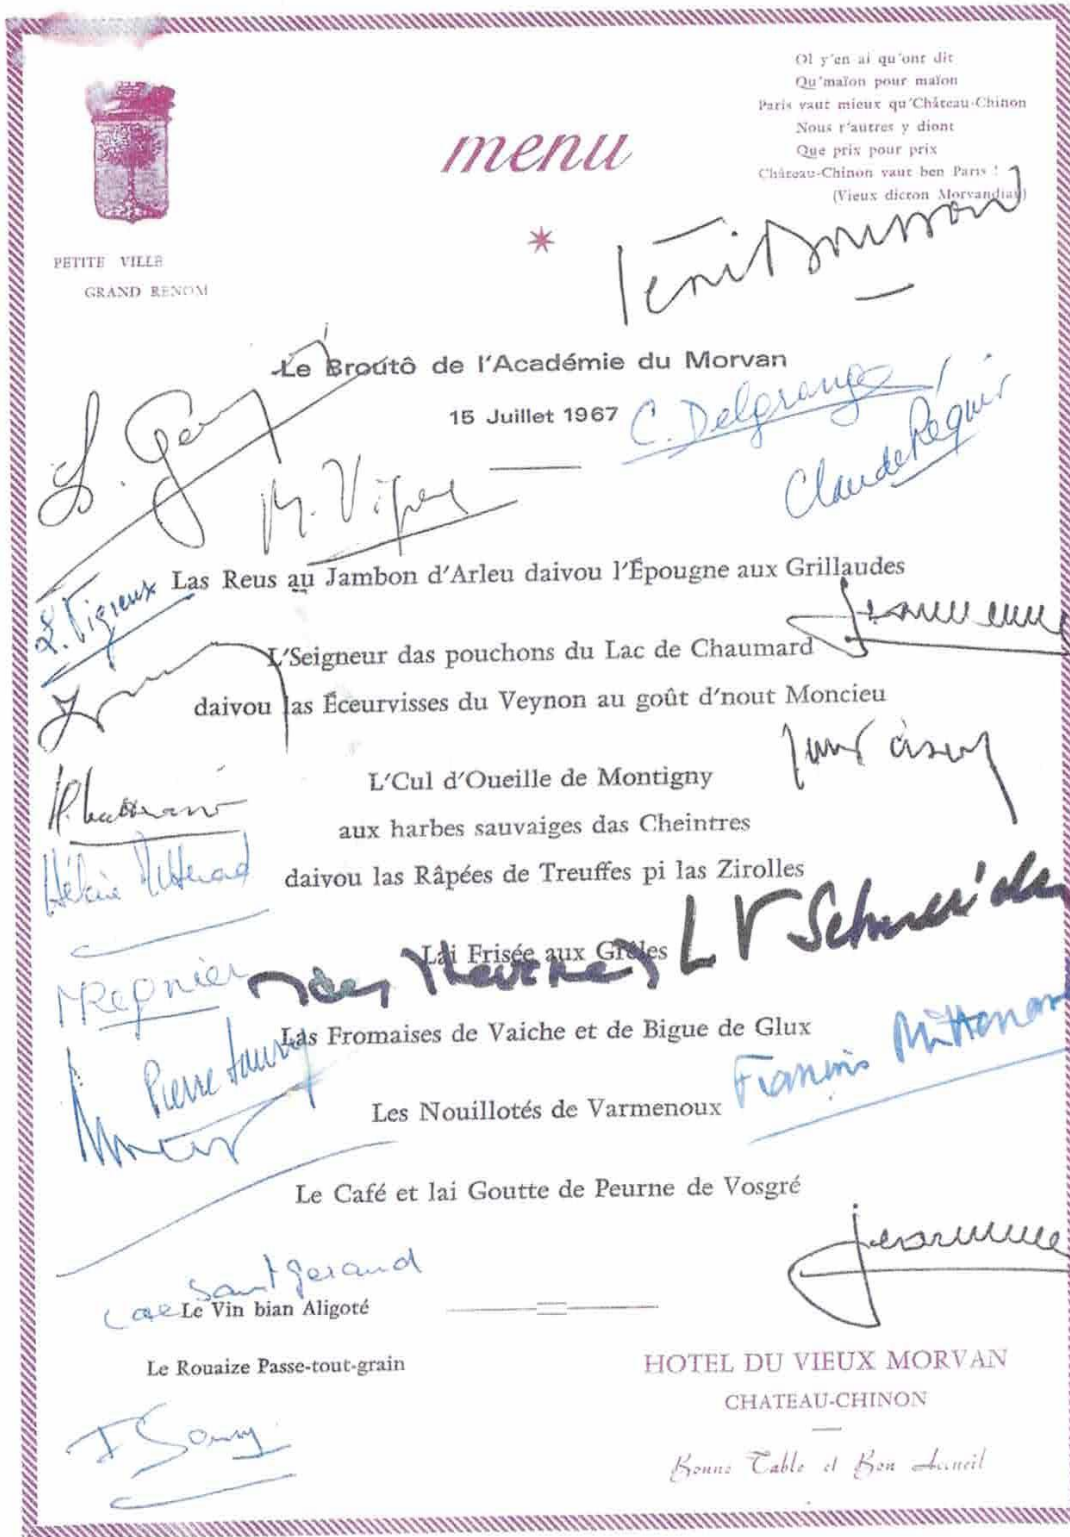 Ol y'en ai qu'ont dit
Qu'maïon pour maïon
Paris vaut mieux qu'Château-Chinon
Nous r'autres y diont
Que prix pour prix
Château-Chinon vaut ben Paris !
(Vieux dicton Morvandiau)
menu
PETITE VILLE
GRAND RENOM
Le Broutô de l'Académie du Morvan
15 Juillet 1967
C. Delgrange
Claude Régnier
L. Vigreux
Las Reus au Jambon d'Arleu daivou l'Épougne aux Grillaudes
L'Seigneur das pouchons du Lac de Chaumard
daivou las Éceurvisses du Veynon au goût d'nout Moncieu
L'Cul d'Oueille de Montigny
aux harbes sauvaiges das Cheintres
daivou las Râpées de Treuffes pi las Zirolles
Hélène Mitterand
Lai Frisée aux Grêles
Régnier
Las Fromaises de Vaiche et de Bigue de Glux
François Mitterrand
Pierre
Les Nouillotés de Varmenoux
Le Café et lai Goutte de Peurne de Vosgré
Saint Gerand
Le Vin bian Aligoté
Le Rouaize Passe-tout-grain
HOTEL DU VIEUX MORVAN
CHATEAU-CHINON
Bonne Table et Bon Accueil